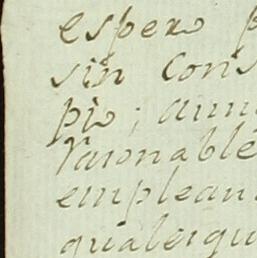 espero p
sin cons
pio; aun
raonable
emplean
qualesqu